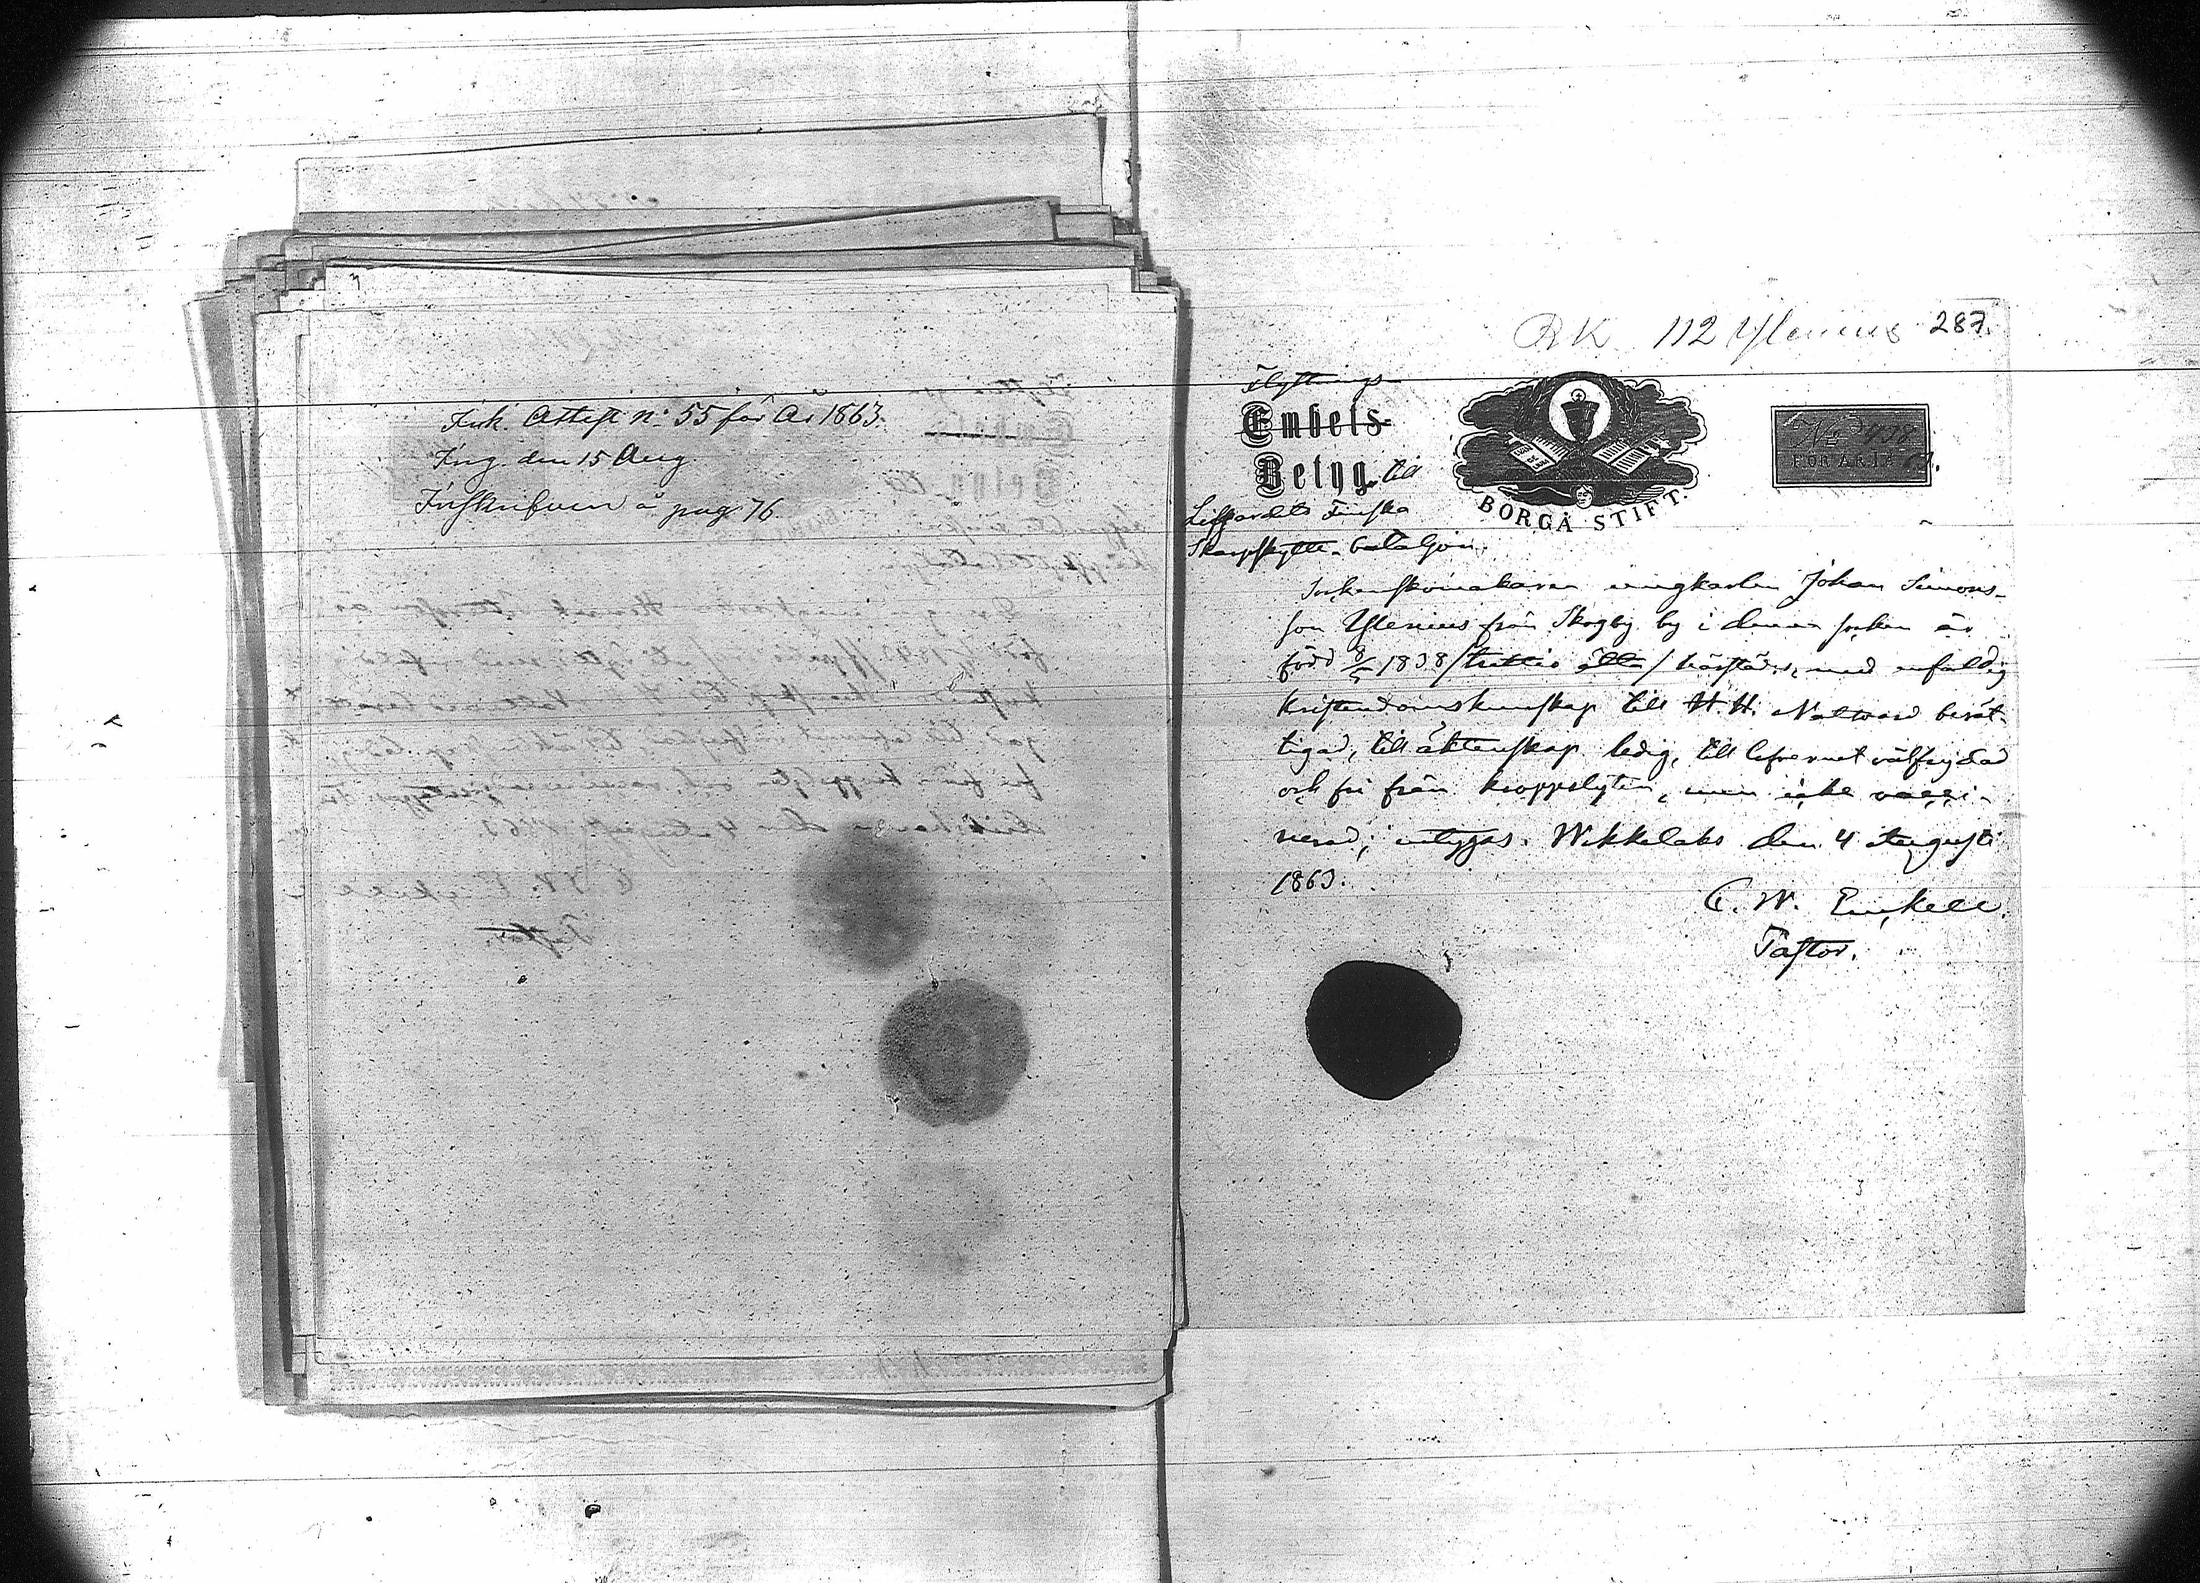 Ink. Attest N: 55 för År 1863.
Ing. den 15 Aug.
Inskrifven å pag. 76
RK 112 Ylenius 287.
Flyttnings-
Embets-
Betyg till
Lifgardets Finska
Skarpskytte-bataljon.
BORGÅ STIFT.
No 938
FÖR ÅR 18
Sockenskomakaren ungkarlen Johan Simons-
son Ylenius från Skogby by i denna socken är
född 8/5 1838 /trettio åtta/ härstädes, med enfaldig
kristendomskunskap till H. H. Nattvard berät-
tigad, till äktenskap ledig, till lefvernet välfrejdad
och fri från kroppslyten, men icke vacci-
nerad; intygas. Wekkelaks den 4 Augusti
1863.
C. W. Enckell.
Pastor.